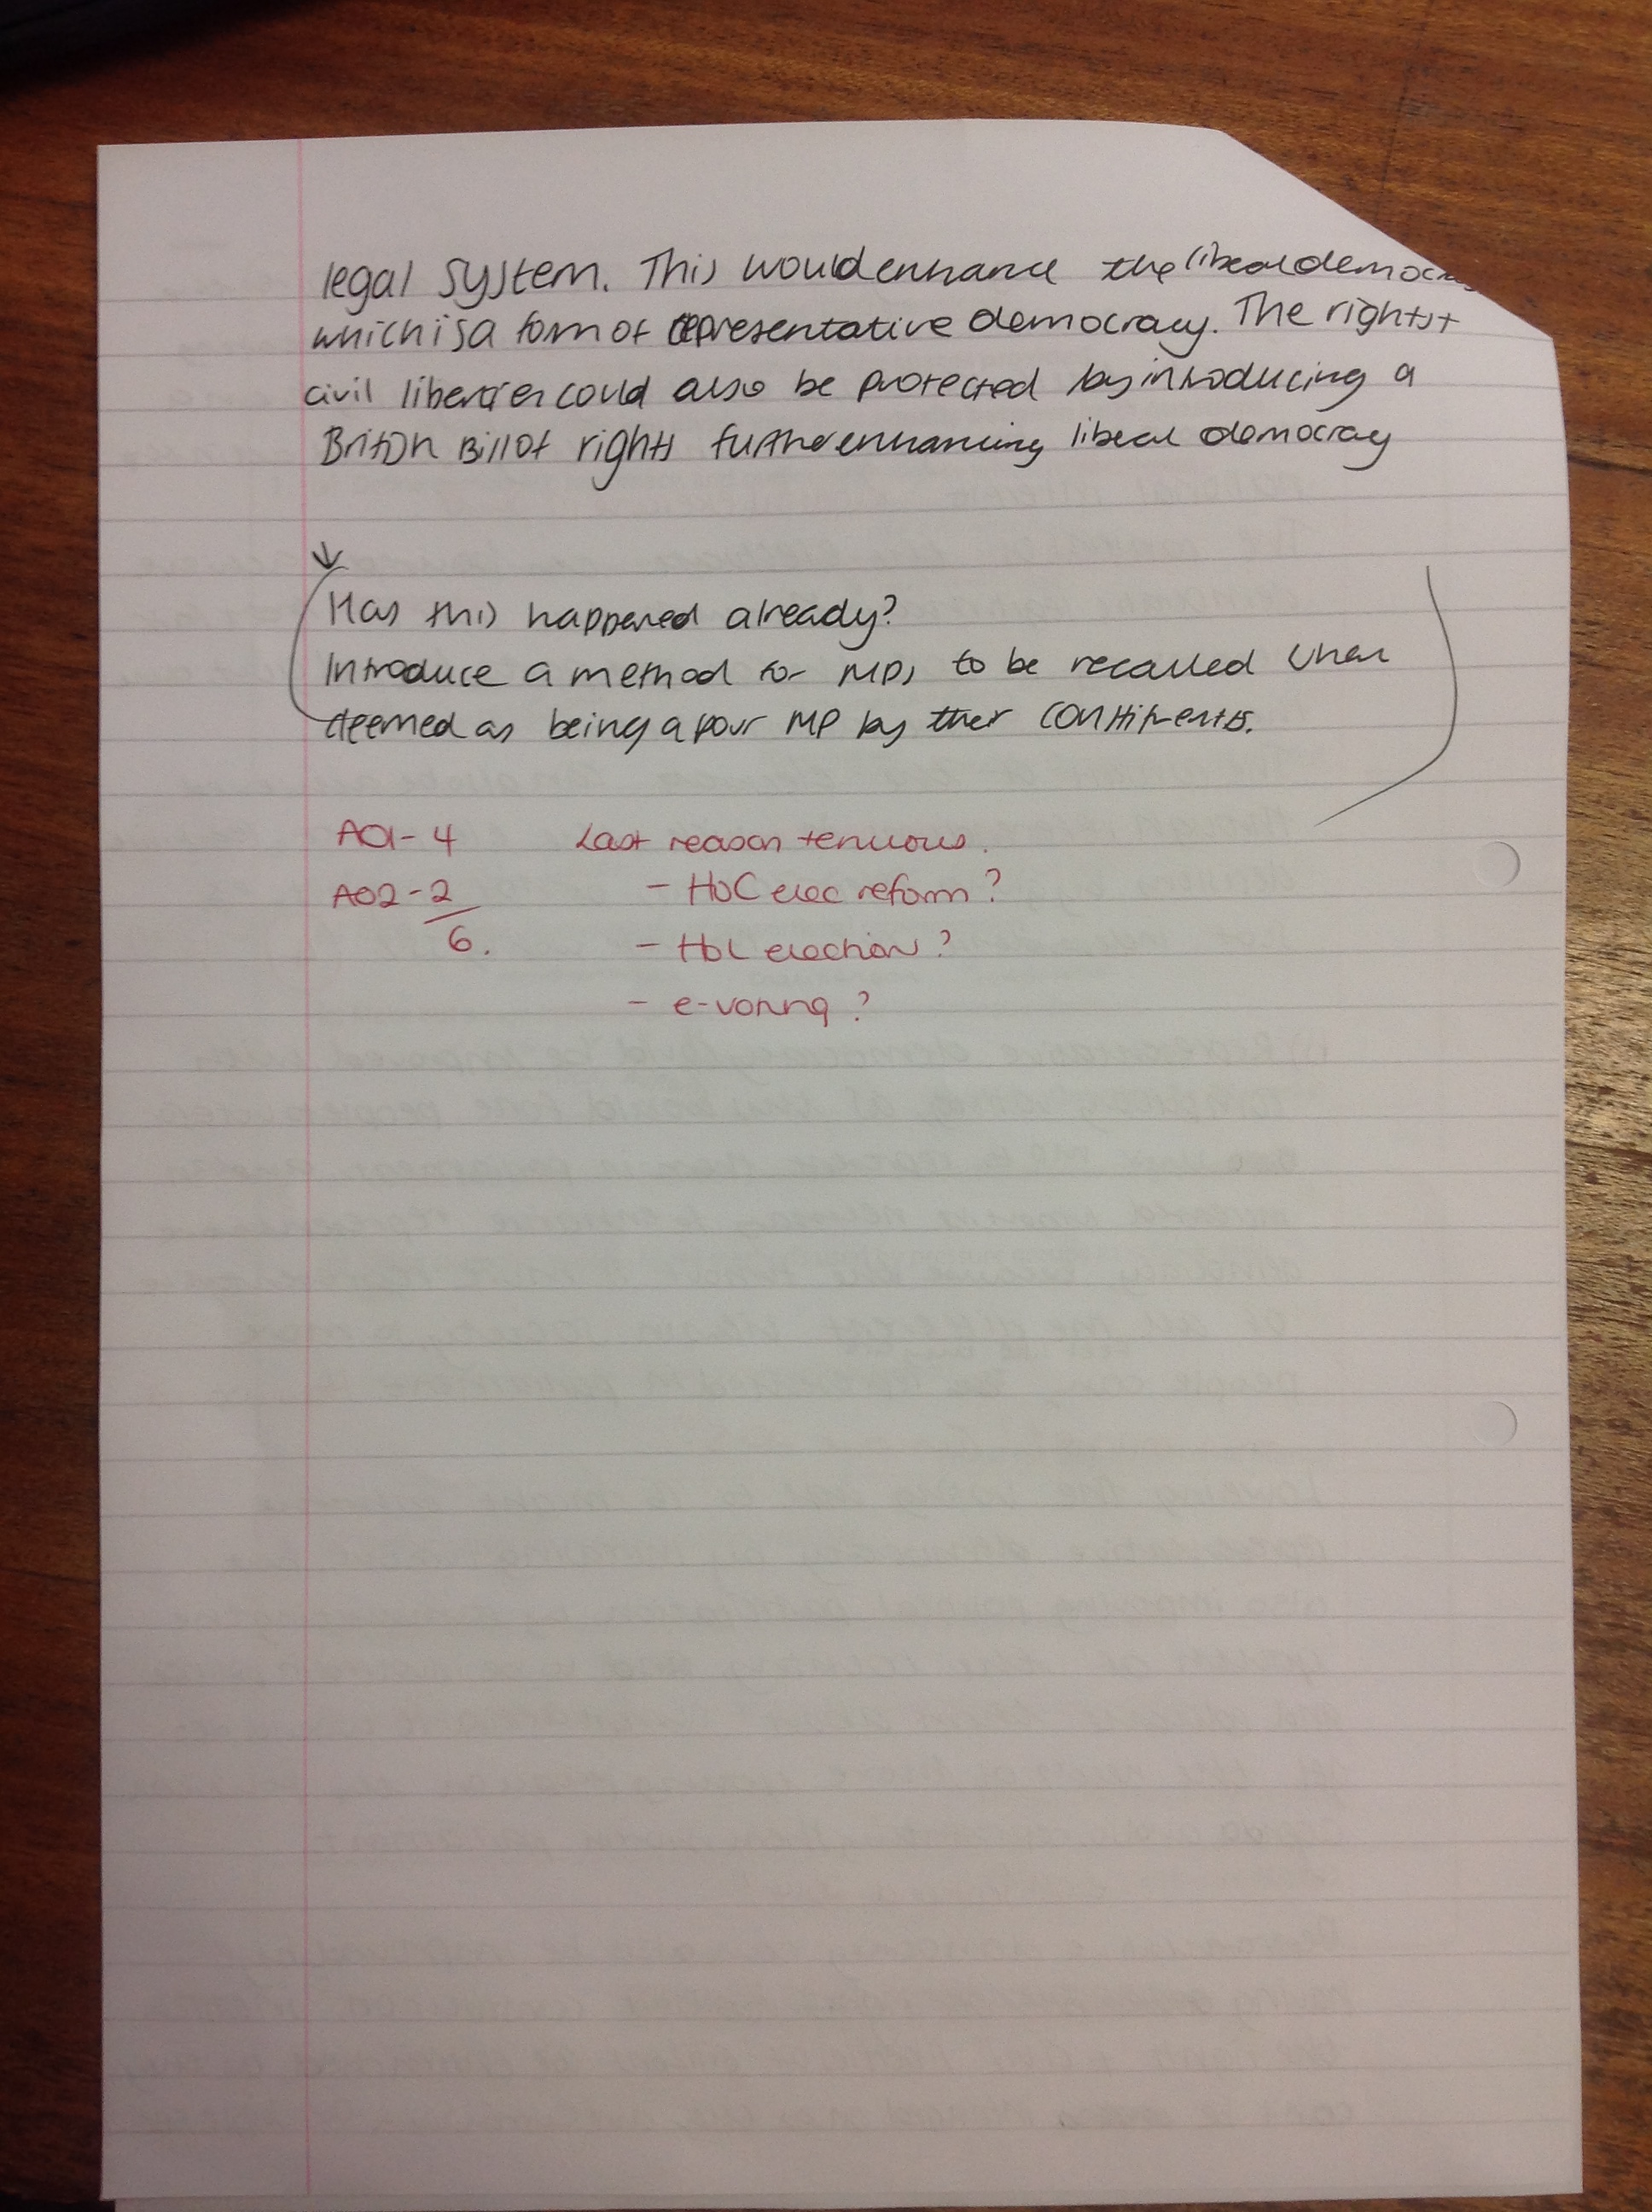 legal system. This would enhance the liberal democracy
which is a form of representative democracy. The rights +
civil liberties could also be protected by introducing a
British Bill of rights further enhancing liberal democracy
Has this happened already?
Introduce a method for MPs to be recalled when
deemed as being a poor MP by their constituents.
AO1 - 4 Last reason tenuous.
AO2 - 2 - HoC elec reform?
6. - HoL election?
- e-voting?